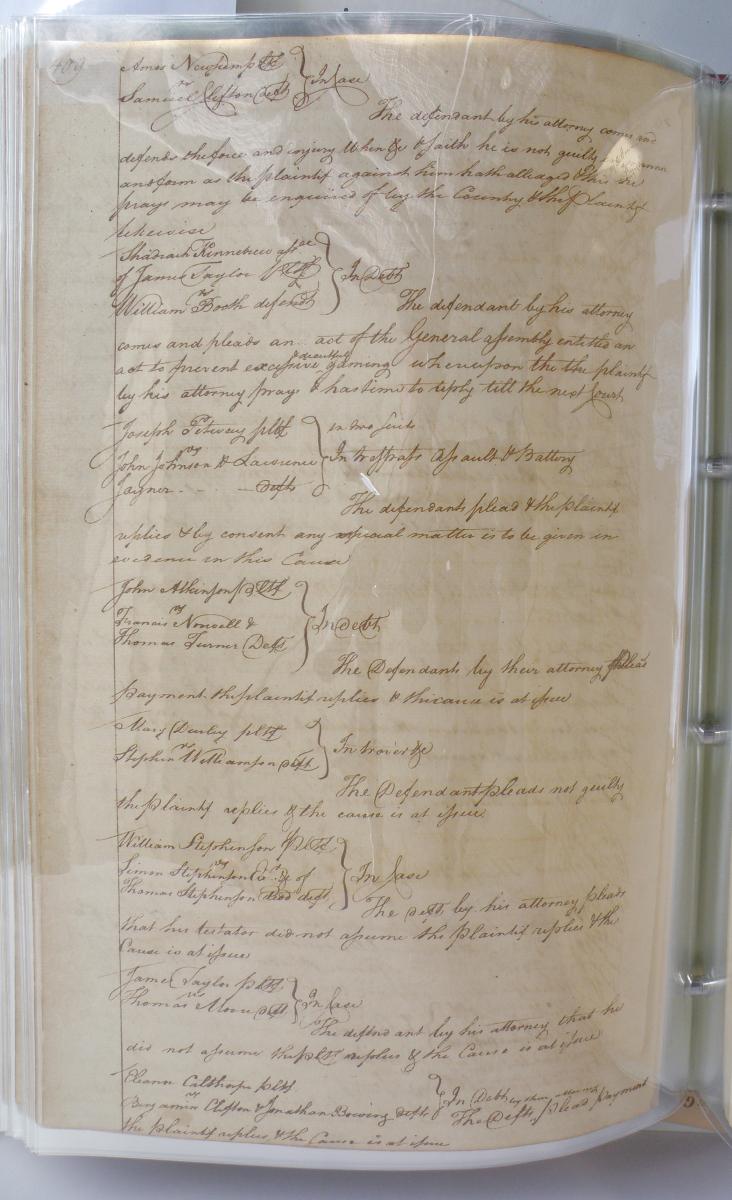 409
Amos Newsum pltf
vs } In Case
Samuel Clifton deft
The defendant by his attorney comes and
defends the force and injury When &c & saith he is not guilty in manner
and form as the plaintif against him hath alleaged & this he
prays may be enquired of by the Country & the plaintif
likewise
Shadrach Kinnebrew assee
of James Taylor pltf } In Debt
vs
William Booth defendt
The defendant by his attorney
comes and pleads an act of the General assembly entitled an
act to prevent excessive & deceitful gaming whereupon the the plaintif
by his attorney prays & has time to reply till the next Court
Joseph pltf } in two suits
vs
John Johnson & Lawrence } In trespass assault & Battery
Joyner - - - Defts
The defendants plead & the plaintif
replies & by consent any special matter is to be given in
evidence in this Cause
John Atkinson pltf
vs
Francis Nowell & } In Debt
Thomas Turner Deft
The Defendants by their attorney pleads
payment the plaintif replies & the cause is at issue
Mary pltf
vs } In trover &c
Stephen Williamson deft
The Defendant pleads not guilty
the plaintif replies & the cause is at issue
William Stephenson pltf
vs
Simon Stephenson &c of } In Case
Thomas Stephenson decd deft
The deft by his attorney pleads
that his testator did not assume the plaintif replies & the
Cause is at issue
James Taylor pltf
vs } In Case
Thomas Moore deft
The defendant by his attorney that he
did not assume the pltf replies & the Cause is at issue
Eleanor Calthorpe pltf
vs } In Debt by their attorney
Benjamin Clifton & Jonathan defts The Defts plead payment
the plaintif replies & the Cause is at issue